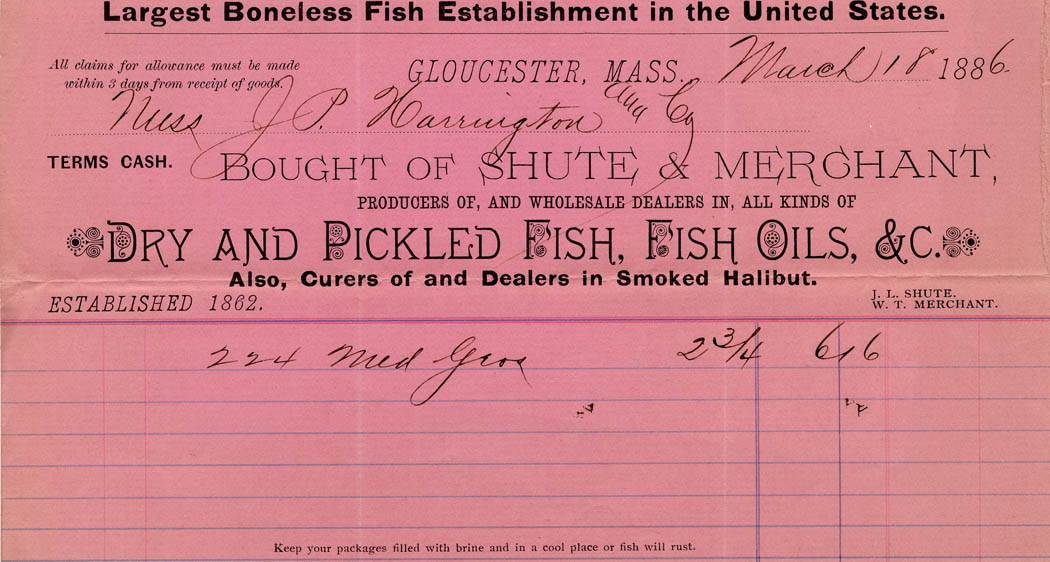 Largest Boneless Fish Establishment in the United States.
All claims for allowance must be made
within 3 days from receipt of goods.
GLOUCESTER, MASS., March 18 1886.
Mess J. P. Harrington and Co
TERMS CASH. BOUGHT OF SHUTE & MERCHANT,
PRODUCERS OF, AND WHOLESALE DEALERS IN, ALL KINDS OF
DRY AND PICKLED FISH, FISH OILS, &C.
Also, Curers of and Dealers in Smoked Halibut.
ESTABLISHED 1862.
J. L. SHUTE.
W. T. MERCHANT.
224 Med 2 3/4 6 16
Keep your packages filled with brine and in a cool place or fish will rust.